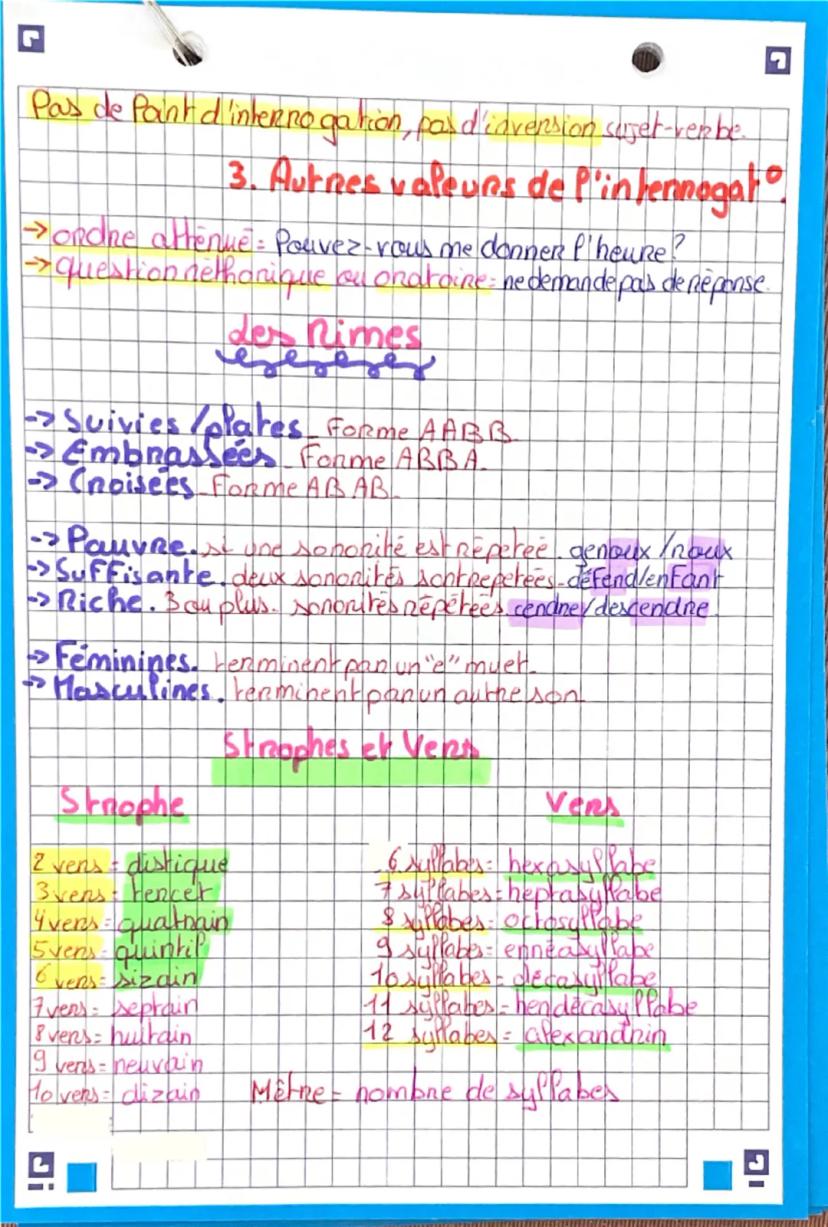 Pas de Point d'interrogation, pas d'inversion sujet-verbe.
3. Autres valeurs de l'interrogat°.
→ ordre atténué = Pouvez-vous me donner l'heure?
→ question réthorique ou oratoire = ne demande pas de réponse.
Les Rimes
-> Suivies / plates _ Forme AABB.
-> Embrassées _ Forme ABBA.
-> Croisées _ Forme ABAB.
-> Pauvre. si une sonorité est répetée. genoux / houx
-> Suffisante. deux sonorités sont repetées. défend/enfant
-> Riche. 3 ou plus. sonorités répétées. cendre/descendre
-> Féminines. terminent par un "e" muet.
-> Masculines. terminent par un autre son
Strophes et Vers
Strophe Vers
2 vers = distique 6 syllabes = hexasyllabe
3 vers = tercet 7 syllabes = heptasyllabe
4 vers = quatrain 8 syllabes = octosyllabe
5 vers = quintil 9 syllabes = ennéasyllabe
6 vers = sizain 10 syllabes = décasyllabe
7 vers = septain 11 syllabes = hendécasyllabe
8 vers = huitain 12 syllabes = alexandrin
9 vers = neuvain
10 vers = dizain Mètre = nombre de syllabes